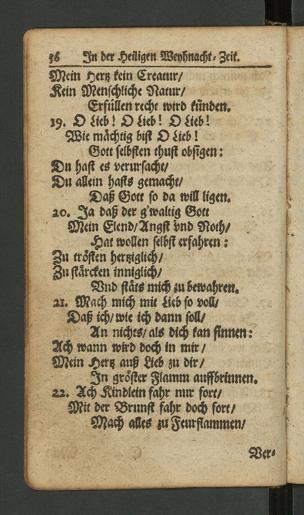 56 In der Heiligen Weyhnacht-Zeit.
Mein Hertz kein Creatur/
Kein Menschliche Natur/
Erfüllen recht wird künden.
19. O Lieb! O Lieb! O Lieb!
Wie mächtig bist O Lieb!
Gott selbsten thust obsigen:
Du hast es verursacht/
Du allein hasts gemacht/
Daß Gott so da will ligen.
20. Ja daß der g'waltig Gott
Mein Elend/Angst vnd Noth/
Hat wollen selbst erfahren:
Zu trösten hertziglich/
Zu stärcken inniglich/
Vnd stäts mich zu bewahren.
21. Mach mich mit Lieb so voll/
Daß ich/wie ich dann soll/
An nichts/als dich kan sinnen:
Ach wann wird doch in mir/
Mein Hertz auß Lieb zu dir/
In gröster Flamm auffbrinnen.
22. Ach Kindlein fahr nur fort/
Mit der Brunst fahr doch fort/
Mach alles zu Feurflammen/
Ver-